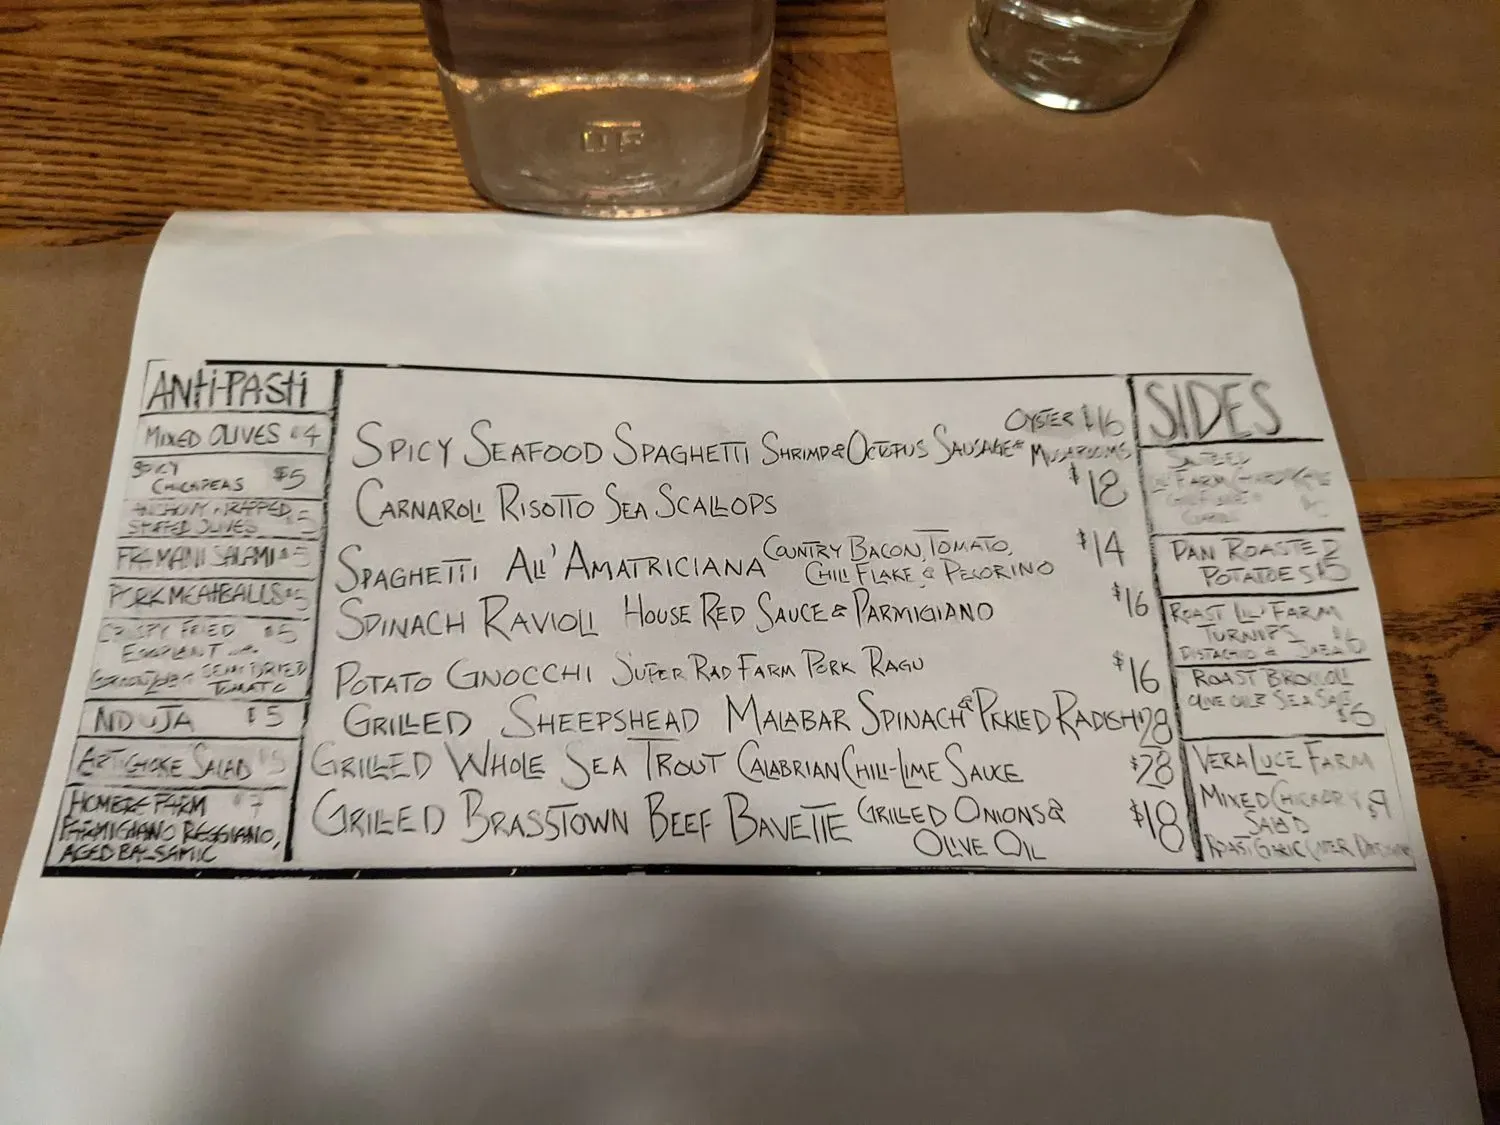 ANTI-PASTI
MIXED OLIVES $4
SPICY
CHICKPEAS $5
ANCHOVY WRAPPED
STUFFED OLIVES $5
FRAMANI SALAMI $5
PORK MEATBALLS $5
CRISPY FRIED $5
EGGPLANT
SEMI DRIED
TOMATO
NDUJA $5
ARTICHOKE SALAD $5
FARM $7
PARMIGIANO REGGIANO,
AGED BALSAMIC
OYSTER $16
SPICY SEAFOOD SPAGHETTI SHRIMP & OCTOPUS SAUSAGE & MUSHROOMS
CARNAROLI RISOTTO SEA SCALLOPS $18
SPAGHETTI ALL' AMATRICIANA COUNTRY BACON, TOMATO, $14
CHILI FLAKE & PECORINO
SPINACH RAVIOLI HOUSE RED SAUCE & PARMIGIANO $16
POTATO GNOCCHI SUPER RAD FARM PORK RAGU $16
GRILLED SHEEPSHEAD MALABAR SPINACH & PICKLED RADISH $28
GRILLED WHOLE SEA TROUT CALABRIAN CHILI-LIME SAUCE $28
GRILLED BRASSTOWN BEEF BAVETTE GRILLED ONIONS & $18
OLIVE OIL
SIDES
FARM
PAN ROASTED
POTATOES $5
ROAST LIL' FARM
TURNIPS $6
PISTACHIO &
ROAST BROCCOLI
OLIVE OIL & SEA SALT
$6
VERA LUCE FARM
MIXED CHICKORY $9
SALAD
ROAST GARLIC